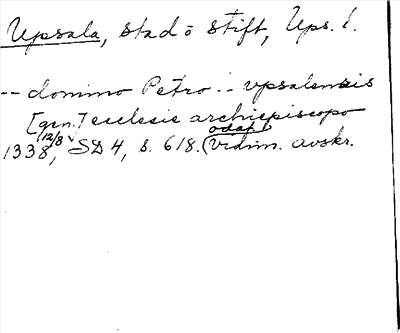 Upsala, stad o stift, Ups. l.
-- domino Petro -- vpsalensis
[gen.] ecclesie archiepiscopo
1338, 12/8 SD 4, s. 618. (odat. vidim. avskr.